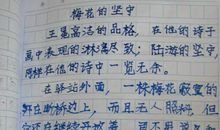 梅花的坚守
王冕高洁的品格,在他的诗于
画中表现的淋漓尽致;陆游的坚守,
同样在他的诗中一览无余。
在驿站外面,一株梅花寂寞的
开在断桥边上,而且无人照料,但